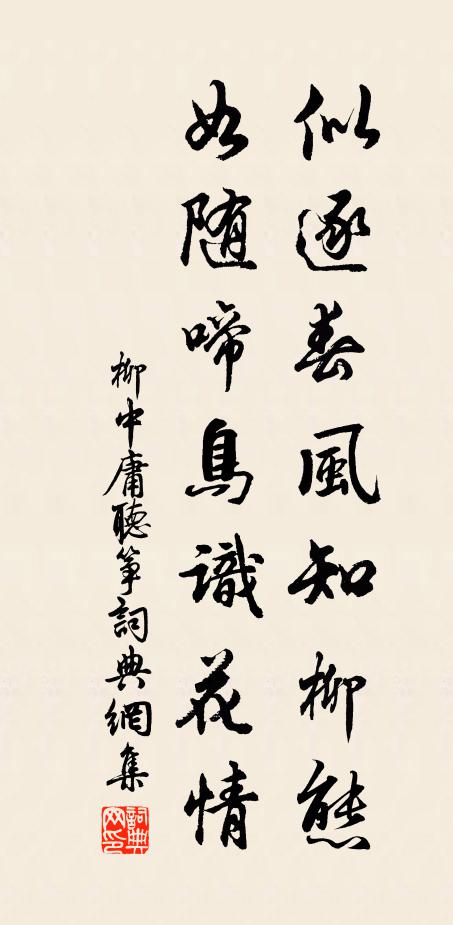 似逐春風知柳態
如随啼鳥識花情
柳中庸聽筝詞典網集
詞典网印